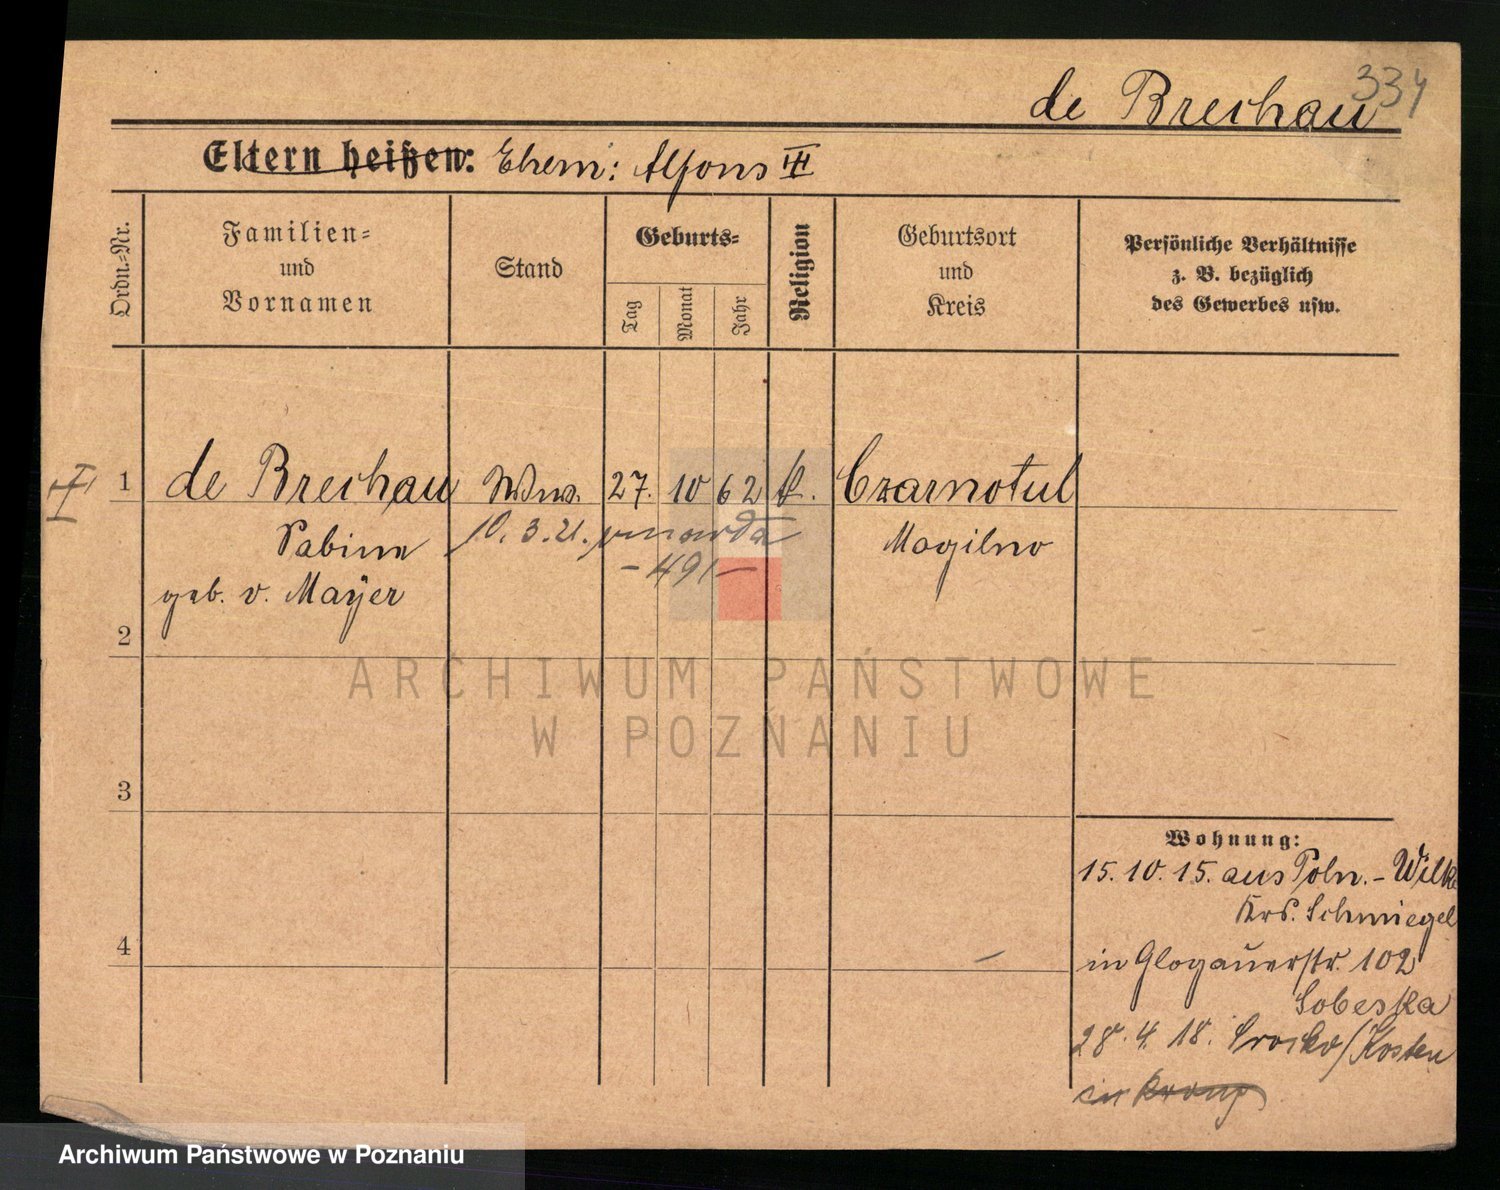 334
de Brechau
Eltern heißen: Ehem: Alfons III
Ordn.-Nr.
Familien-
und
Vornamen
Stand
Geburts-
Tag
Monat
Jahr
Religion
Geburtsort
und
Kreis
Persönliche Verhältnisse
z. B. bezüglich
des Gewerbes usw.
1 de Brechau Wwe. 27. 10 62 k. Czarnotul
Sabina 10. 3. 21. zmarła Mogilno
-491-
geb. v. Mayer
2
3
4
Wohnung:
15. 10. 15. aus Poln.-Wilke
Krs. Schmiegel
in Glogauerstr. 102
Sobeska
28. 4. 18. Srocko/Kosten
in
ARCHIWUM PAŃSTWOWE
W POZNANIU
Archiwum Państwowe w Poznaniu